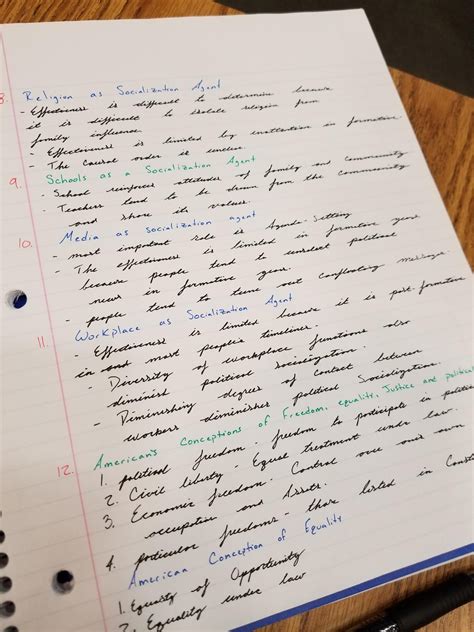 8. Religion as Socialization Agent
- Effectiveness is difficult to determine because
it is difficult to isolate religion from
family influence.
- Effectiveness is limited by inattention in formative
- The causal order is unclear.
9. Schools as a Socialization Agent
- School reinforces attitudes of family and community
- Teachers tend to be drawn from the community
and share its values.
10. Media as socialization agent
- most important role is Agenda-Setting
- The effectiveness is limited in formative years
because people tend to unselect political
news in formative years.
- people tend to tune out conflicting messages.
11. Workplace as Socialization Agent
- Effectiveness is limited because it is post-formative
in and most people's timelines.
- Diversity of workplace functions also
diminish political socialization.
- Diminishing degree of contact between
workers diminishes political Socialization.
12. American's Conceptions of Freedom, equality, Justice and political
1. political freedom. freedom to participate in
2. Civil liberty. Equal treatment under law.
3. Economic freedom. Control over one's own
occupation and Assets.
4. particular freedoms - those listed in
American Conception of Equality
1. Equality of Opportunity
2. Equality under law